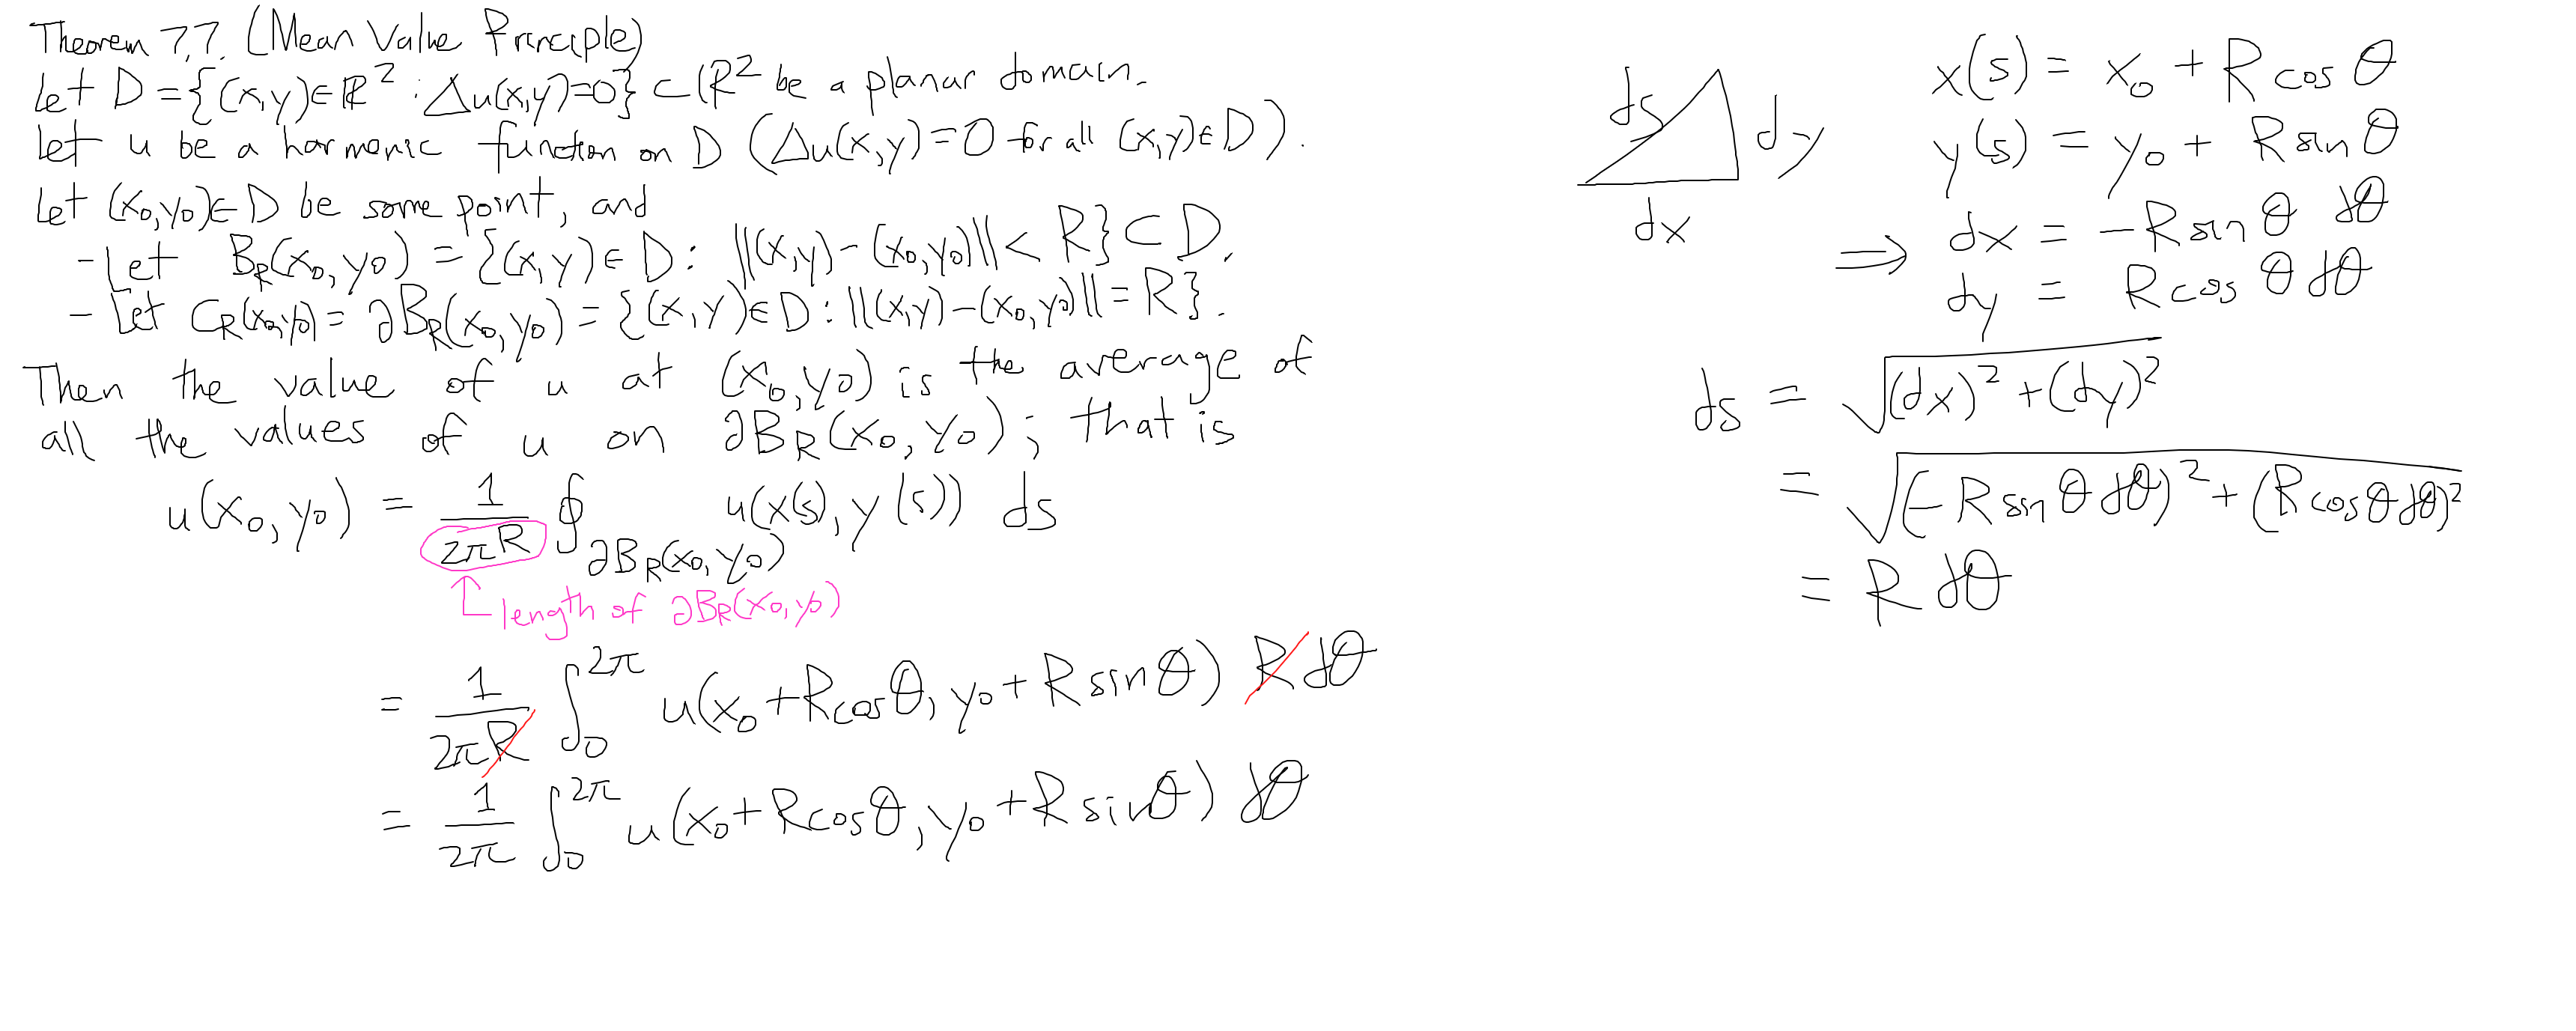 Theorem 7.7. (Mean Value Principle)
Let D = {(x,y)∈ℝ² : Δu(x,y)=0} ⊂ ℝ² be a planar domain.
Let u be a harmonic function on D (Δu(x,y)=0 for all (x,y)∈D).
Let (x₀,y₀)∈D be some point, and
- Let B_R(x₀,y₀) = {(x,y)∈D : ||(x,y)-(x₀,y₀)|| < R} ⊂ D.
- Let C_R(x₀,y₀) = ∂B_R(x₀,y₀) = {(x,y)∈D : ||(x,y)-(x₀,y₀)|| = R}.
Then the value of u at (x₀,y₀) is the average of
all the values of u on ∂B_R(x₀,y₀); that is
u(x₀,y₀) = 1/(2πR) ∮_{∂B_R(x₀,y₀)} u(x(s),y(s)) ds
length of ∂B_R(x₀,y₀)
= 1/(2πR) ∫₀^{2π} u(x₀+Rcosθ, y₀+Rsinθ) R dθ
= 1/(2π) ∫₀^{2π} u(x₀+Rcosθ, y₀+Rsinθ) dθ
ds
dy
dx
x(s) = x₀ + R cos θ
y(s) = y₀ + R sin θ
⇒ dx = -R sin θ dθ
dy = R cos θ dθ
ds = √((dx)² + (dy)²)
= √((-R sin θ dθ)² + (R cos θ dθ)²)
= R dθ